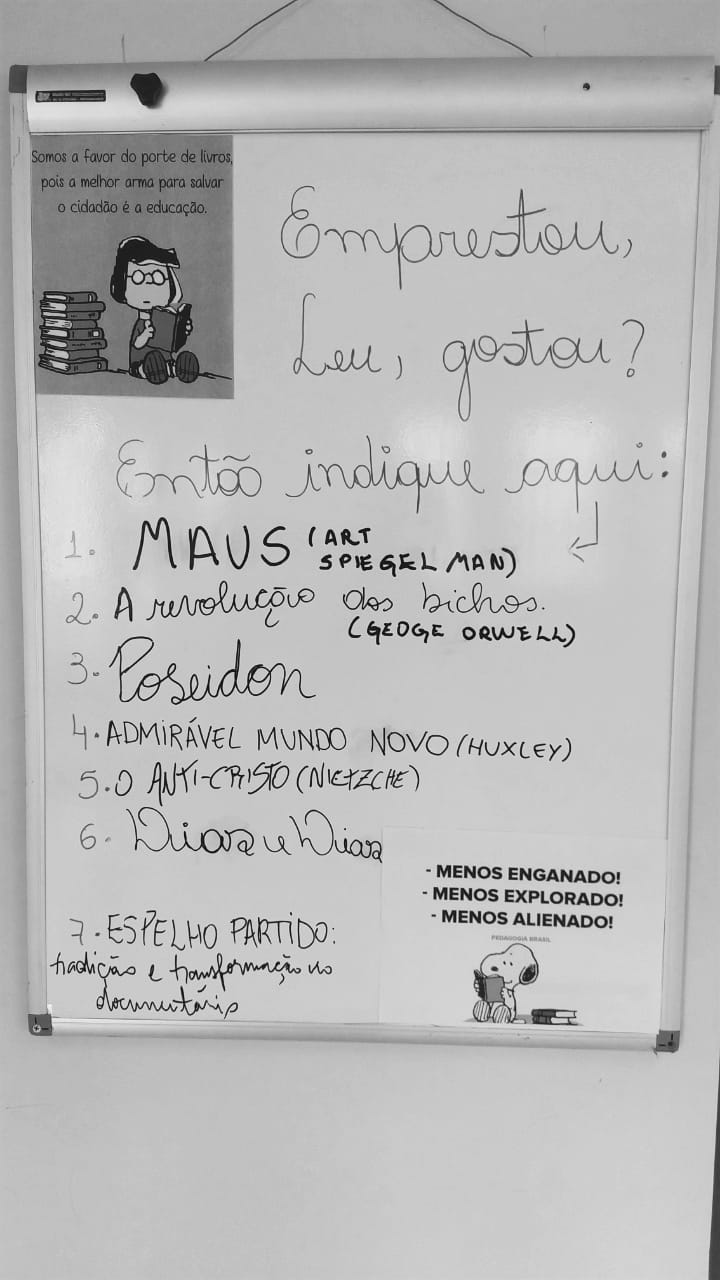 Somos a favor do porte de livros,
pois a melhor arma para salvar
o cidadão é a educação.
Emprestou,
Leu, gostou?
Então indique aqui:
1. MAUS (ART
SPIEGELMAN)
2. A revolução dos bichos.
(GEOGE ORWELL)
3. Poseidon
4. ADMIRÁVEL MUNDO NOVO (HUXLEY)
5. O ANTI-CRISTO (NIETZCHE)
6.
- MENOS ENGANADO!
- MENOS EXPLORADO!
- MENOS ALIENADO!
PEDAGOGIA BRASIL
7. ESPELHO PARTIDO:
tradição e transformação no
documentário